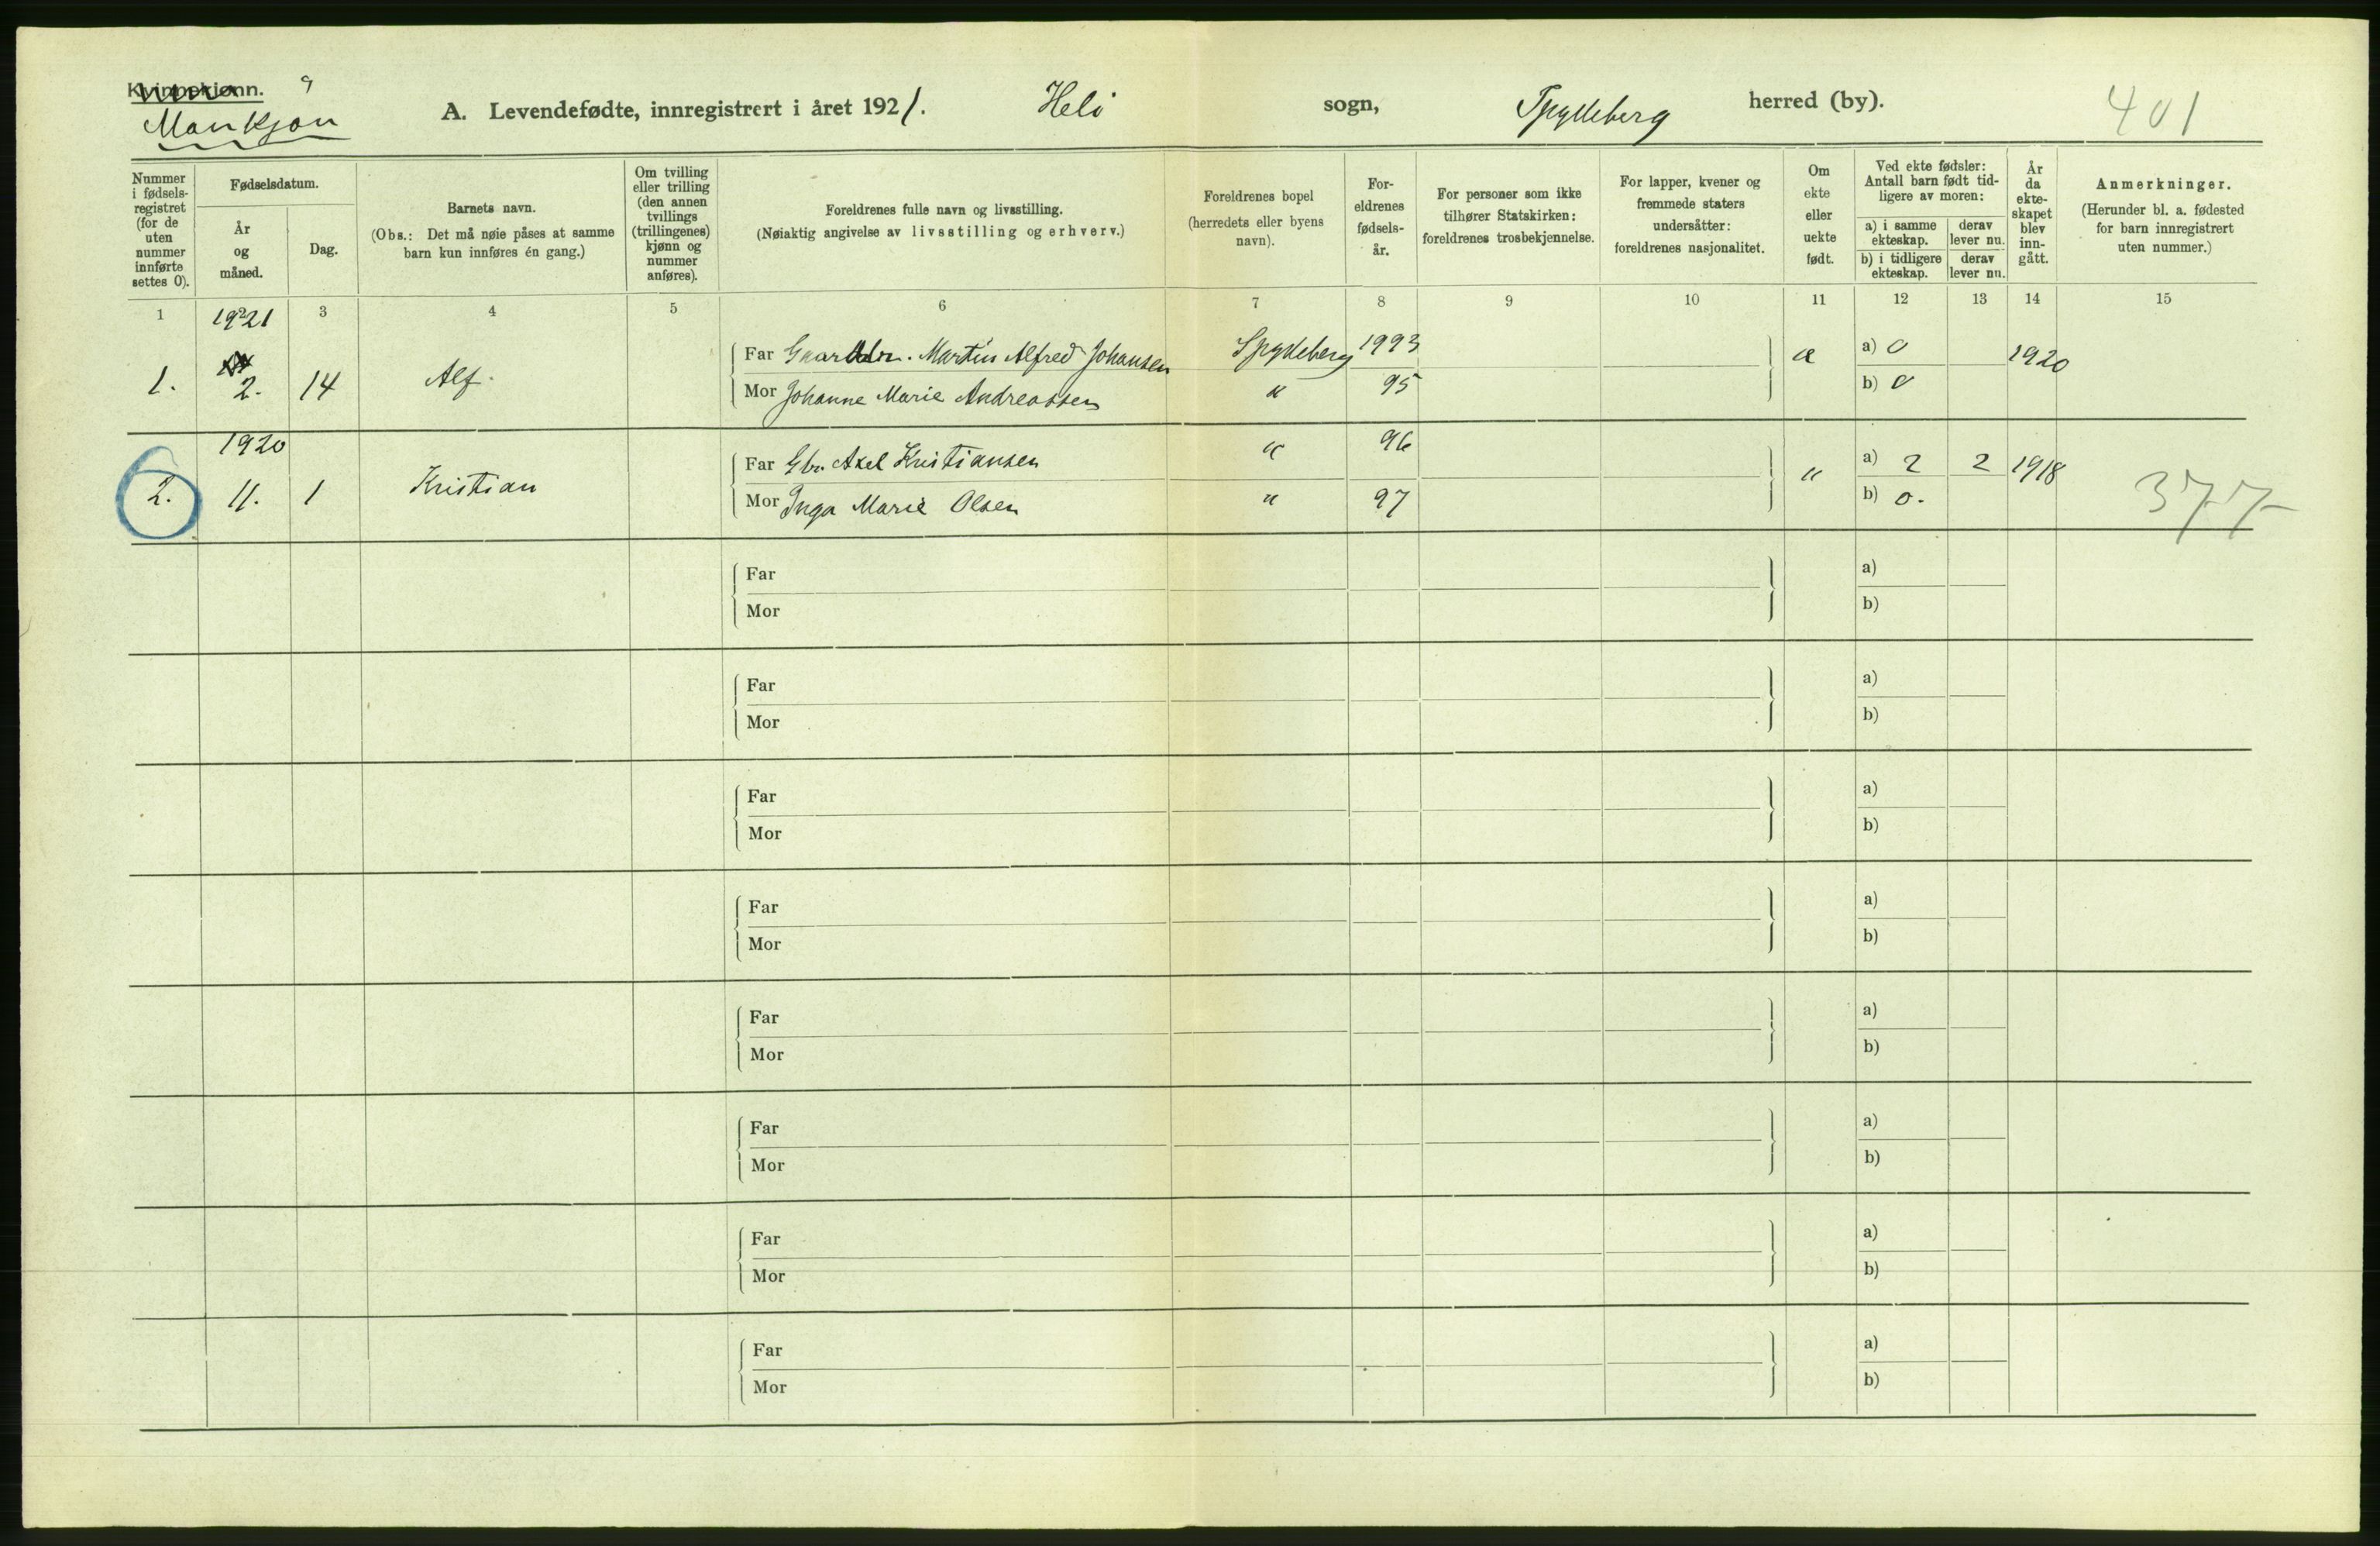 Kvinnekjønn.
Mankjøn
A. Levendefødte, innregistrert i året 1921. Heli sogn, Spydeberg herred (by). 401
Nummer i fødselsregistret (for de uten nummer innførte settes 0).
Fødselsdatum.
År og måned.
Dag.
Barnets navn.
(Obs.: Det må nøie påses at samme barn kun innføres én gang.)
Om tvilling eller trilling (den annen tvillings (trillingenes) kjønn og nummer anføres).
Foreldrenes fulle navn og livsstilling.
(Nøiaktig angivelse av livsstilling og erhverv.)
Foreldrenes bopel (herredets eller byens navn).
Foreldrenes fødselsår.
For personer som ikke tilhører Statskirken: foreldrenes trosbekjennelse.
For lapper, kvener og fremmede staters undersåtter: foreldrenes nasjonalitet.
Om ekte eller uekte født.
Ved ekte fødsler: Antall barn født tidligere av moren:
a) i samme ekteskap. derav lever nu.
b) i tidligere ekteskap. derav lever nu.
År da ekteskapet blev inngått.
Anmerkninger.
(Herunder bl. a. fødested for barn innregistrert uten nummer.)
1 2 3 4 5 6 7 8 9 10 11 12 13 14 15
1921
1. 2. 14 Alf. Far Martin Alfred Johansen Spydeberg 1993 a) 0 1920
Mor Johanne Marie Andreassen " 95 b) 0
1920
2. 11. 1 Kristian Far Gbr. Axel Kristiansen " 96 " a) 2 2 1918
Mor Inga Marie Olsen " 97 b) 0. 377
Far a)
Mor b)
Far a)
Mor b)
Far a)
Mor b)
Far a)
Mor b)
Far a)
Mor b)
Far a)
Mor b)
Far a)
Mor b)
Far a)
Mor b)